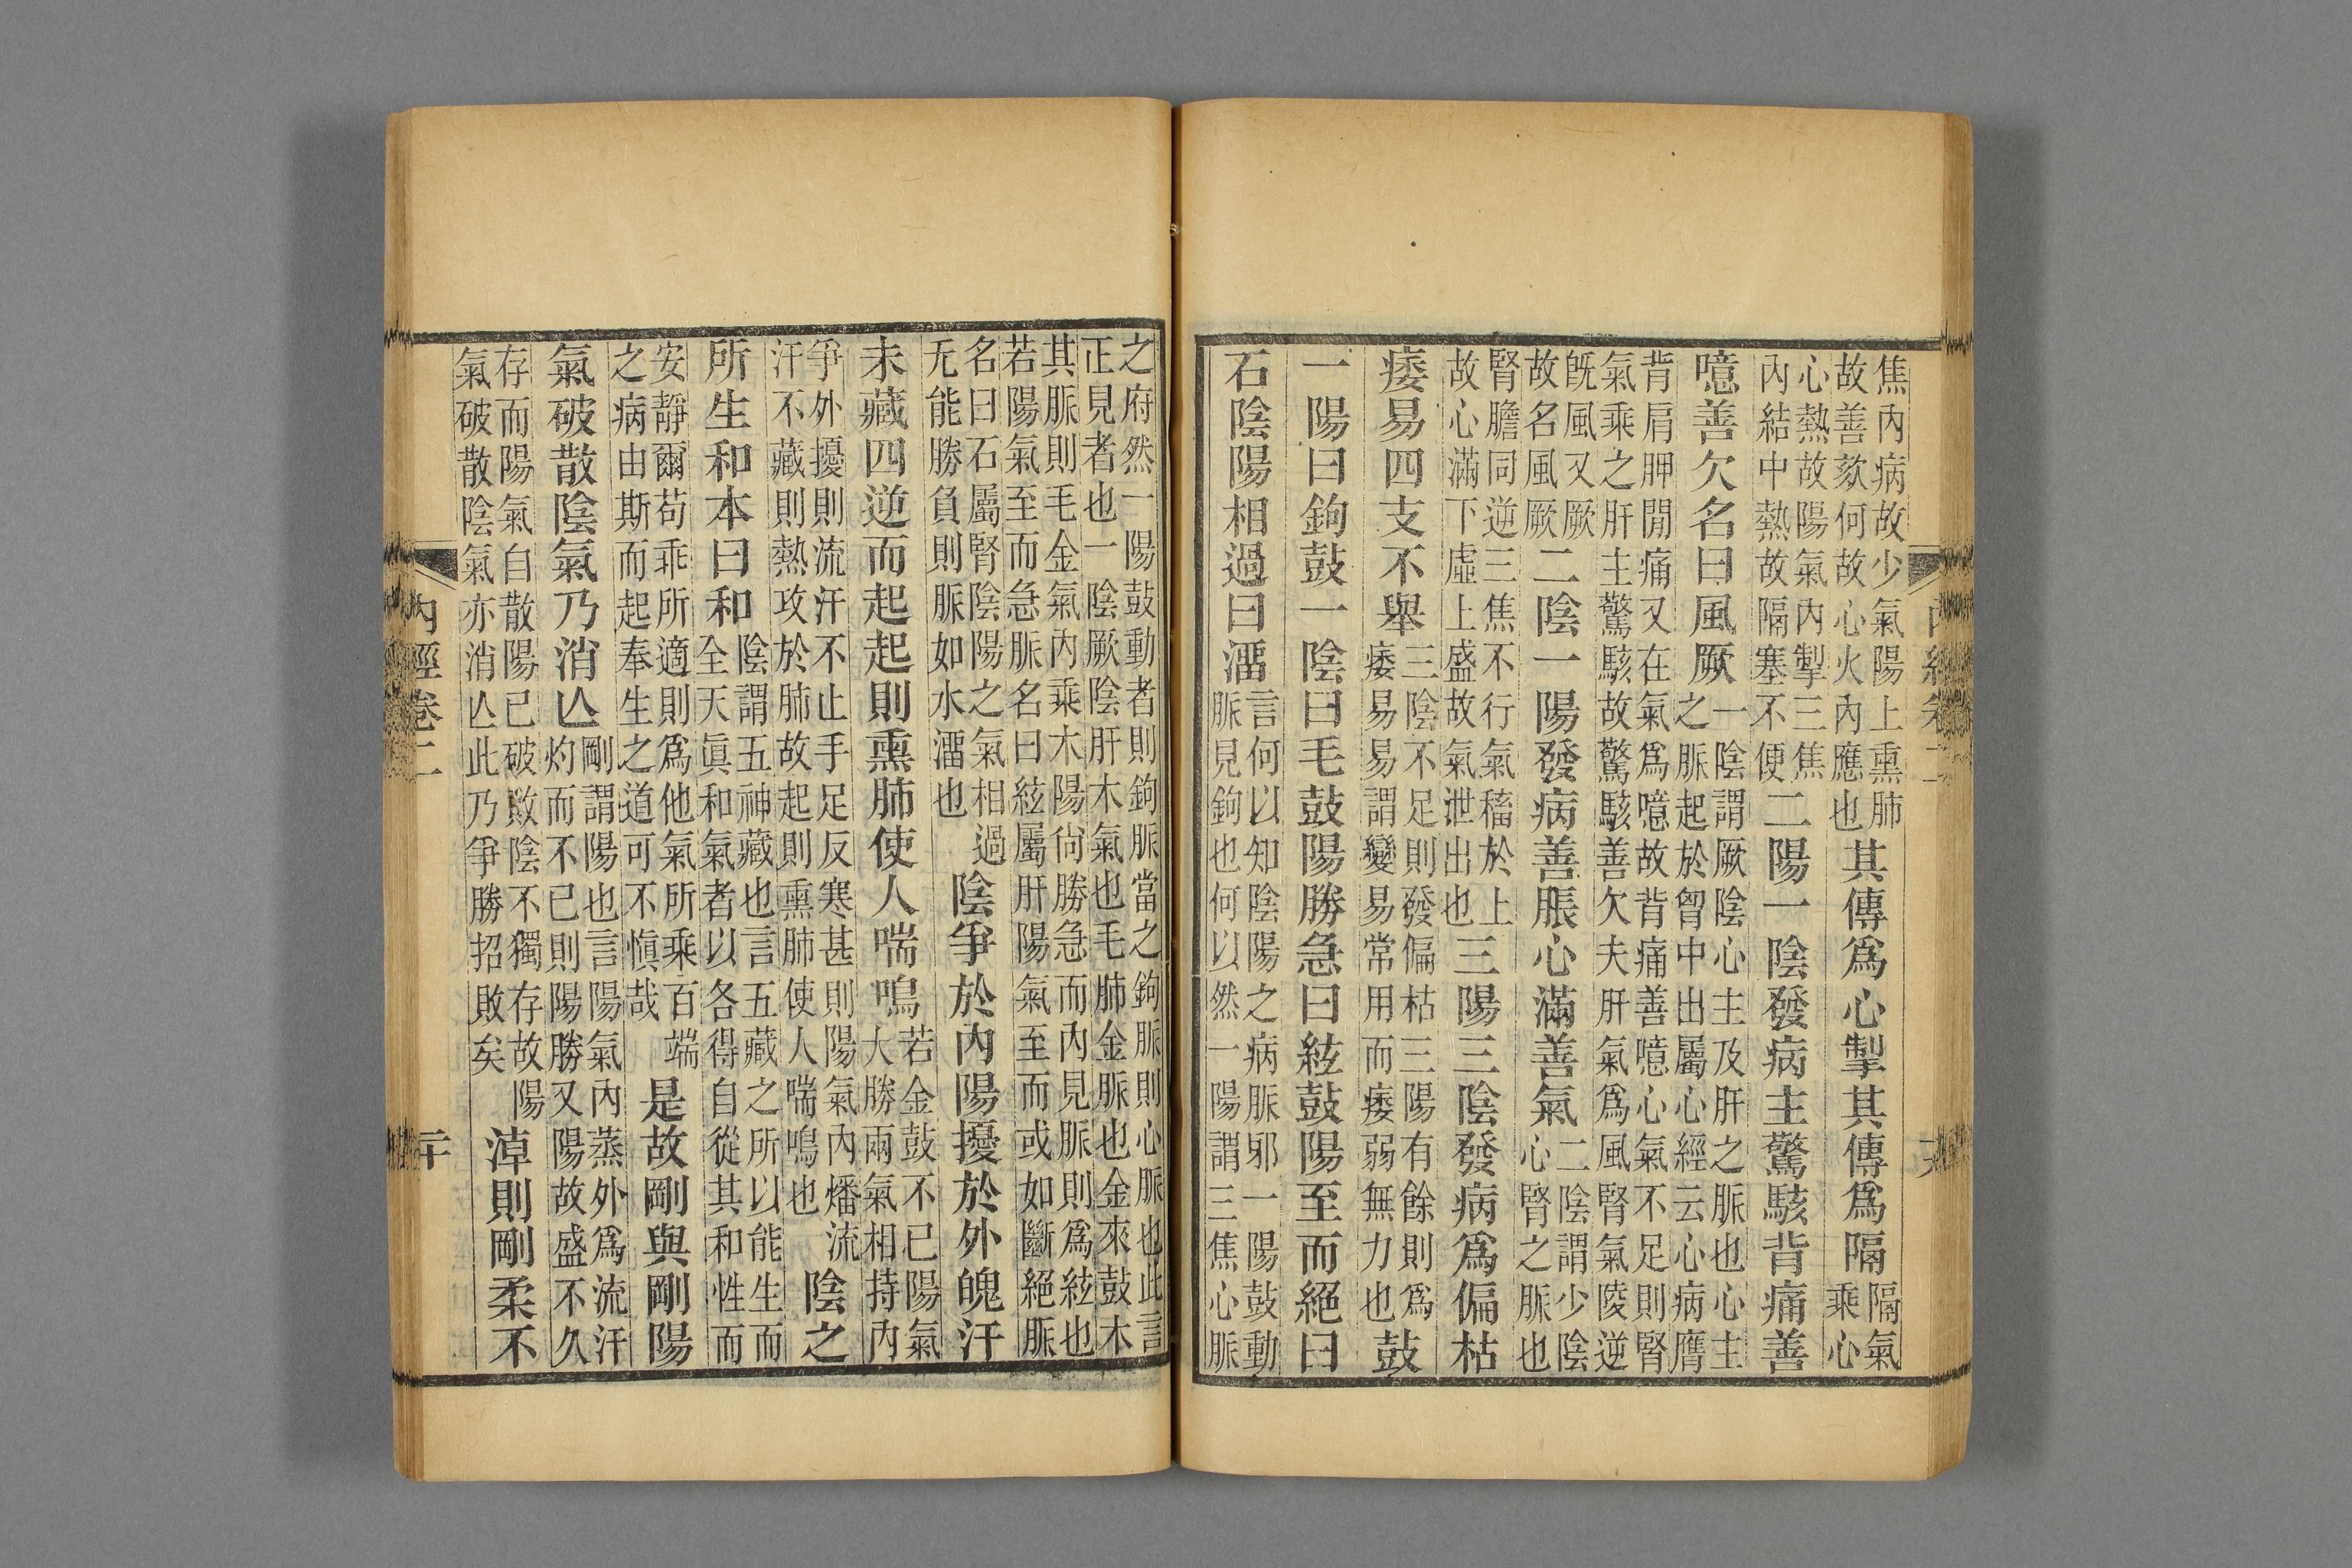 焦內病故少氣陽上熏肺故善欬何故心火內應也其傳爲心掣其傳爲隔隔氣乘心
心熱故陽氣內掣三焦內結中熱故隔塞不便二陽一陰發病主驚駭背痛善
噫善欠名曰風厥一陰謂厥陰心主及肝之脈也心主之脈起於胷中出屬心經云心病膺
背肩胛閒痛又在氣爲噫故背痛善噫心氣不足則腎氣乘之肝主驚駭故驚駭善欠夫肝氣爲風腎氣陵逆
旣風又厥故名風厥二陰一陽發病善脹心滿善氣二陰謂少陰心腎之脈也
腎膽同逆三焦不行氣稸於上故心滿下虛上盛故氣泄出也三陽三陰發病爲偏枯
痿易四支不舉三陰不足則發偏枯三陽有餘則爲痿易易謂變易常用而痿弱無力也鼓
一陽曰鉤鼓一陰曰毛鼓陽勝急曰絃鼓陽至而絕曰
石陰陽相過曰溜言何以知陰陽之病脈邪一陽鼓動脈見鉤也何以然一陽謂三焦心脈
之府然一陽鼓動者則鉤脈當之鉤脈則心脈也此言正見者也一陰厥陰肝木氣也毛肺金脈也金來鼓木
其脈則毛金氣內乘木陽尙勝急而內見脈則爲絃也若陽氣至而急脈名曰絃屬肝陽氣至而或如斷絕脈
名曰石屬腎陰陽之氣相過无能勝負則脈如水溜也陰爭於內陽擾於外魄汗
未藏四逆而起起則熏肺使人喘鳴若金鼓不已陽氣大勝兩氣相持內
爭外擾則流汗不止手足反寒甚則陽氣內燔流汗不藏則熱攻於肺故起則熏肺使人喘鳴也陰之
所生和本曰和陰謂五神藏也言五藏之所以能生而全天眞和氣者以各得自從其和性而
安靜爾苟乖所適則爲他氣所乘百端之病由斯而起奉生之道可不愼哉是故剛與剛陽
氣破散陰氣乃消亾剛謂陽也言陽氣內蒸外爲流汗灼而不已則陽勝又陽故盛不久
存而陽氣自散陽已破敗陰不獨存故陽氣破散陰氣亦消亾此乃爭勝招敗矣淖則剛柔不
內經卷二
二十